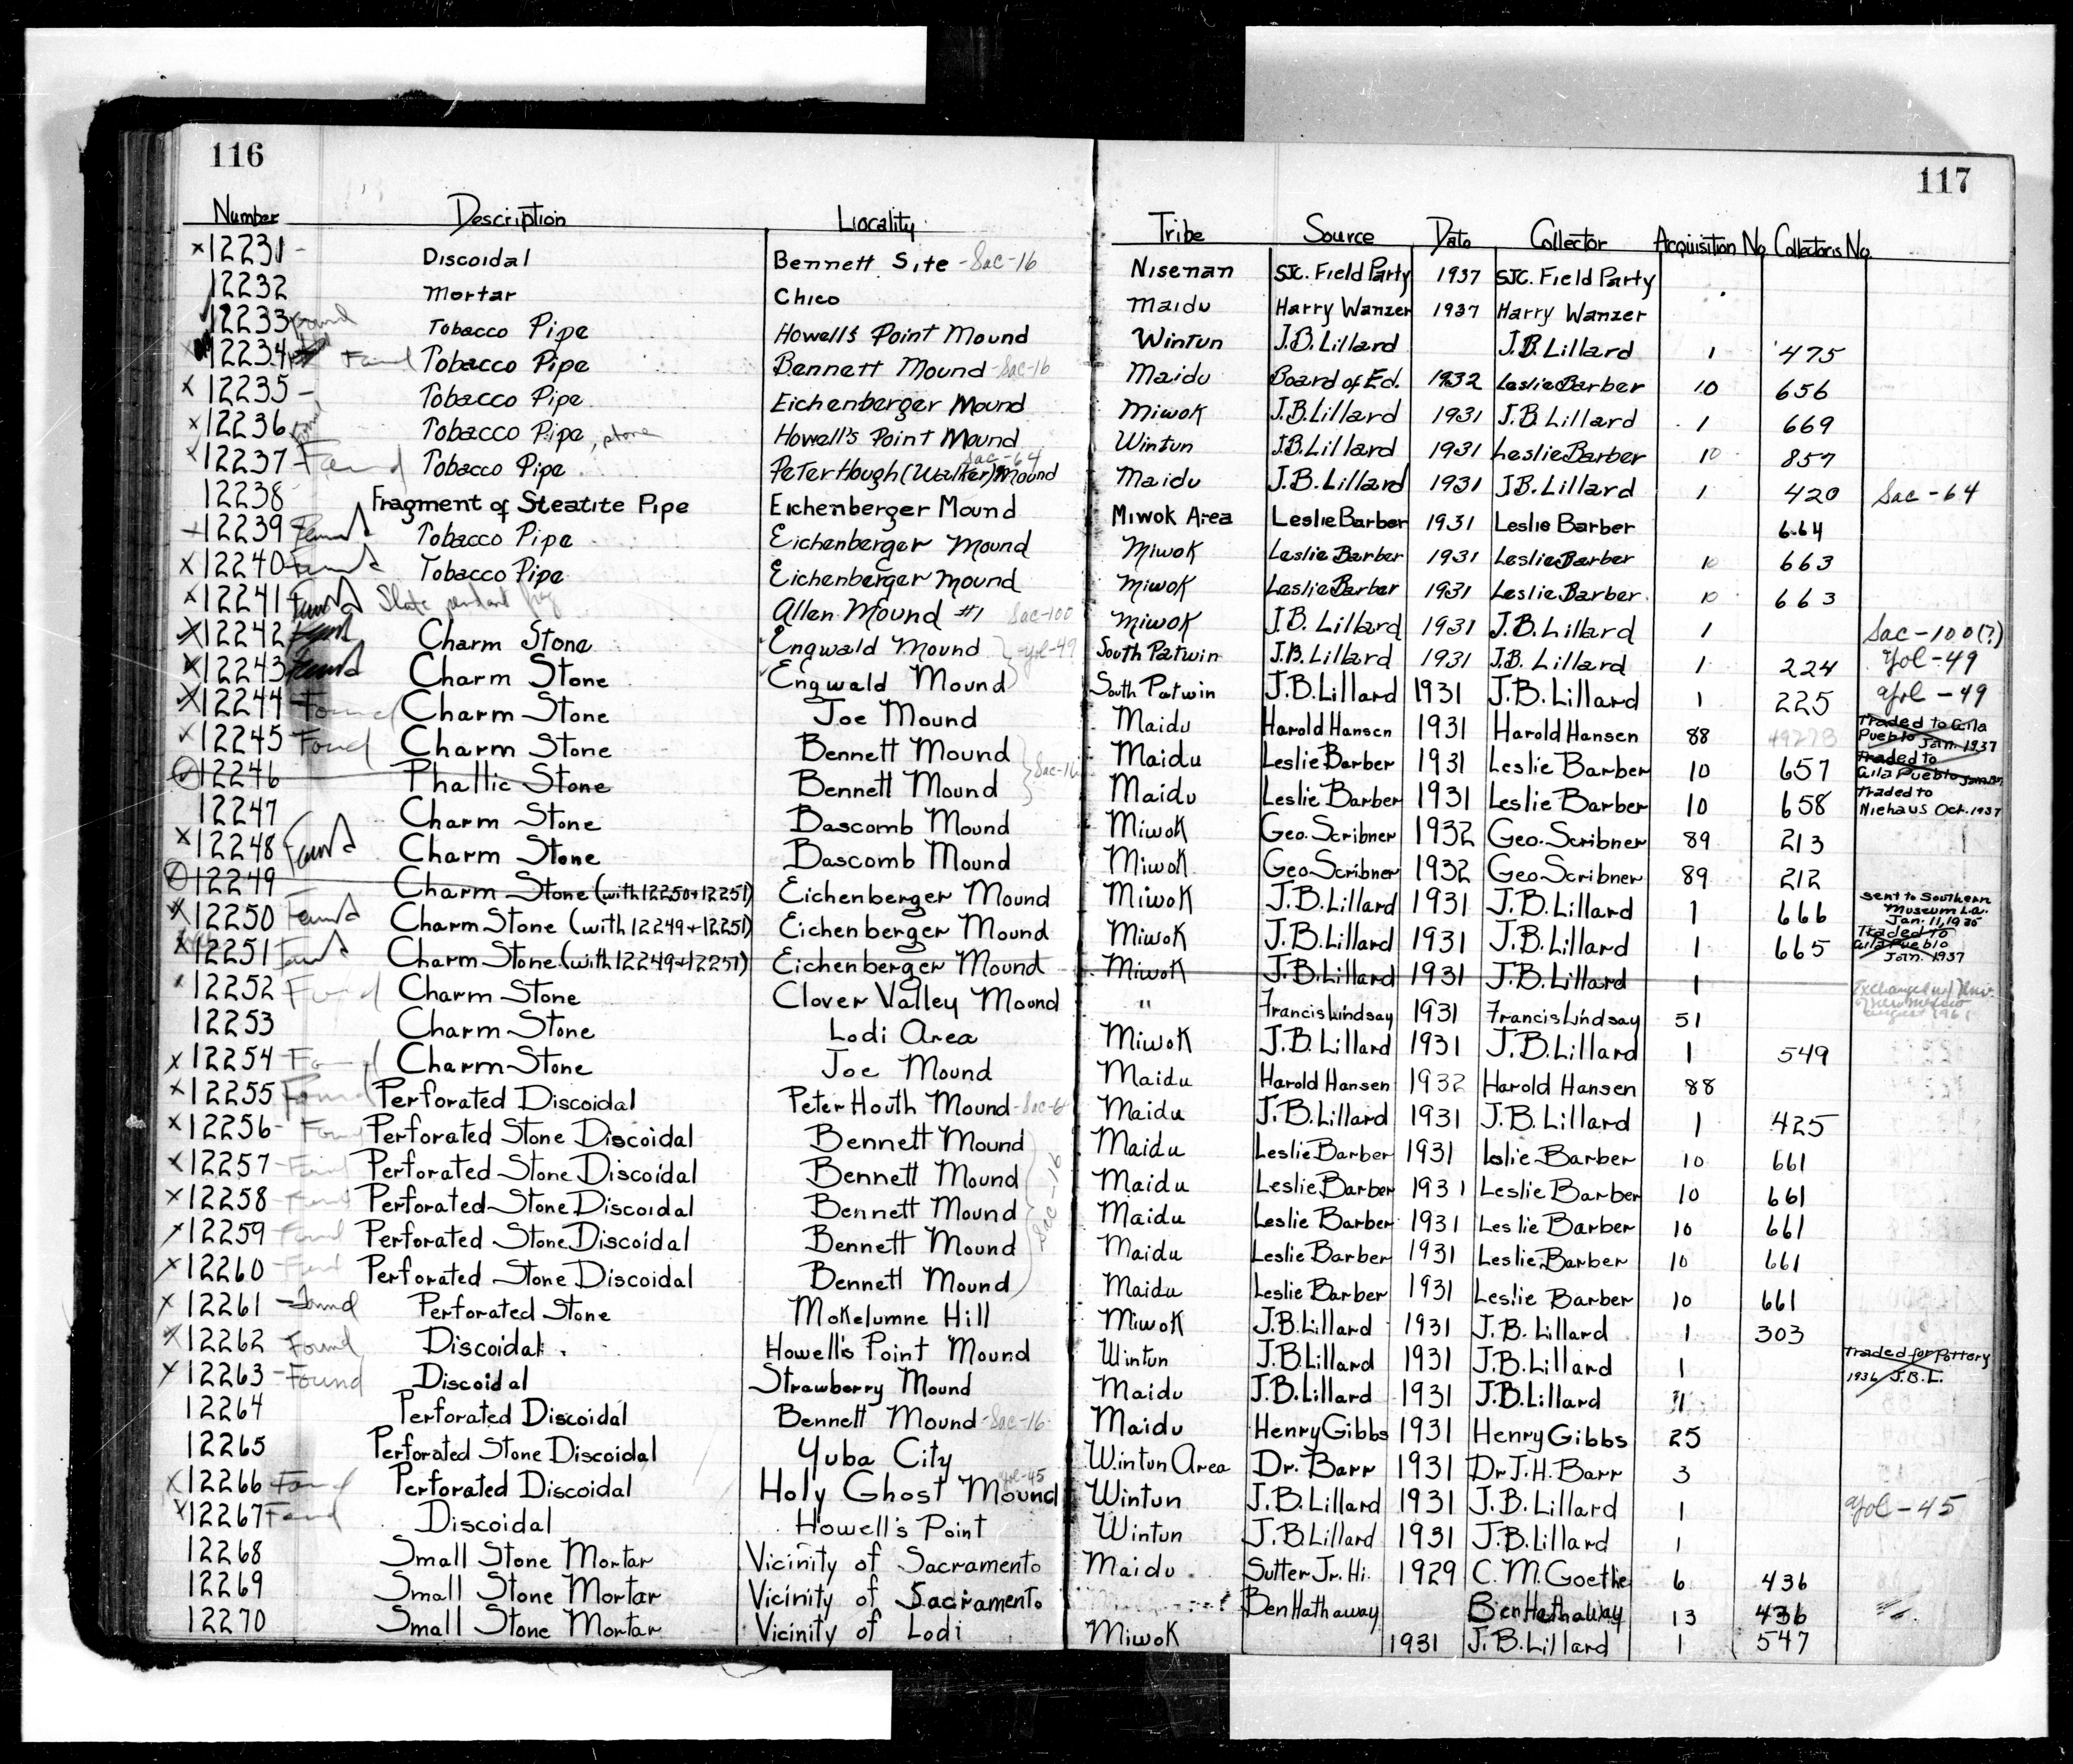 116
117
Number Description Locality Tribe Source Date Collector Acquisition No. Collectors No.
x 12231 - Discoidal Bennett Site - Sac-16 Nisenan SJC. Field Party 1937 SJC. Field Party
12232 Mortar Chico Maidu Harry Wanzer 1937 Harry Wanzer
12233 Found Tobacco Pipe Howell's Point Mound Wintun J.B. Lillard J.B. Lillard 1 475
12234 Found Tobacco Pipe Bennett Mound - Sac-16 Maidu Board of Ed. 1932 Leslie Barber 10 656
x 12235 - Tobacco Pipe Eichenberger Mound Miwok J.B. Lillard 1931 J.B. Lillard 1 669
x 12236 Found Tobacco Pipe, stone Howell's Point Mound Wintun J.B. Lillard 1931 Leslie Barber 10 857
x 12237 - Found Tobacco Pipe Peter Hough (Walker) Mound Sac-64 Maidu J.B. Lillard 1931 J.B. Lillard 1 420 Sac-64
12238 Fragment of Steatite Pipe Eichenberger Mound Miwok Area Leslie Barber 1931 Leslie Barber 664
x 12239 Found Tobacco Pipe Eichenberger Mound Miwok Leslie Barber 1931 Leslie Barber 10 663
x 12240 Found Tobacco Pipe Eichenberger Mound Miwok Leslie Barber 1931 Leslie Barber 10 663
x 12241 Found Slate pendant frag Allen Mound #1 Sac-100 Miwok J.B. Lillard 1931 J.B. Lillard 1 Sac-100(?)
x 12242 Found Charm Stone Engwald Mound } Yol-49 South Patwin J.B. Lillard 1931 J.B. Lillard 1 224 Yol-49
x 12243 Found Charm Stone Engwald Mound South Patwin J.B. Lillard 1931 J.B. Lillard 1 225 Yol-49
x 12244 - Found Charm Stone Joe Mound Maidu Harold Hansen 1931 Harold Hansen 88 Traded to Gila Pueblo Jan. 1937
x 12245 Found Charm Stone Bennett Mound } Sac-16 Maidu Leslie Barber 1931 Leslie Barber 10 657 Traded to Gila Pueblo
12246 Phallic Stone Bennett Mound Maidu Leslie Barber 1931 Leslie Barber 10 658 Traded to Niehaus Oct. 1937
12247 Charm Stone Bascomb Mound Miwok Geo. Scribner 1932 Geo. Scribner 89 213
x 12248 Found Charm Stone Bascomb Mound Miwok Geo Scribner 1932 Geo Scribner 89 212
12249 Charm Stone (with 12250+12251) Eichenberger Mound Miwok J.B. Lillard 1931 J.B. Lillard 1 666 Sent to Southern Museum L.a. Jan. 11, 1935
x 12250 Found Charm Stone (with 12249+12251) Eichenberger Mound Miwok J.B. Lillard 1931 J.B. Lillard 1 665 Traded to Gila Pueblo Jan. 1937
x 12251 Found Charm Stone (with 12249+12251) Eichenberger Mound Miwok J.B. Lillard 1931 J.B. Lillard 1
x 12252 Found Charm Stone Clover Valley Mound " Francis Lindsay 1931 Francis Lindsay 51 Exchanged w/ Univ. of New Mexico august 1961
12253 Charm Stone Lodi Area Miwok J.B. Lillard 1931 J.B. Lillard 1 549
x 12254 - Found Charm Stone Joe Mound Maidu Harold Hansen 1932 Harold Hansen 88
x 12255 Found Perforated Discoidal Peter Houth Mound Maidu J.B. Lillard 1931 J.B. Lillard 1 425
x 12256 - Found Perforated Stone Discoidal Bennett Mound Maidu Leslie Barber 1931 Leslie Barber 10 661
x 12257 - Found Perforated Stone Discoidal Bennett Mound Maidu Leslie Barber 1931 Leslie Barber 10 661
x 12258 - Found Perforated Stone Discoidal Bennett Mound } Sac-16 Maidu Leslie Barber 1931 Leslie Barber 10 661
x 12259 Found Perforated Stone Discoidal Bennett Mound Maidu Leslie Barber 1931 Leslie Barber 10 661
x 12260 - Found Perforated Stone Discoidal Bennett Mound Maidu Leslie Barber 1931 Leslie Barber 10 661
x 12261 - Found Perforated Stone Mokelumne Hill Miwok J.B. Lillard 1931 J.B. Lillard 1 303
x 12262 Found Discoidal Howell's Point Mound Wintun J.B. Lillard 1931 J.B. Lillard 1 Traded for Pottery 1936 J.B.L.
x 12263 - Found Discoidal Strawberry Mound Maidu J.B. Lillard 1931 J.B. Lillard 1
12264 Perforated Discoidal Bennett Mound - Sac-16 Maidu Henry Gibbs 1931 Henry Gibbs 25
12265 Perforated Stone Discoidal Yuba City Wintun Area Dr. Barr 1931 Dr J.H. Barr 3
x 12266 Found Perforated Discoidal Holy Ghost Mound Yol-45 Wintun J.B. Lillard 1931 J.B. Lillard 1 Yol-45
x 12267 Found Discoidal Howell's Point Wintun J.B. Lillard 1931 J.B. Lillard 1
12268 Small Stone Mortar Vicinity of Sacramento Maidu Sutter Jr. Hi. 1929 C.M. Goethe 6 436
12269 Small Stone Mortar Vicinity of Sacramento Ben Hathaway Ben Hathaway 13 436
12270 Small Stone Mortar Vicinity of Lodi Miwok 1931 J.B. Lillard 1 547